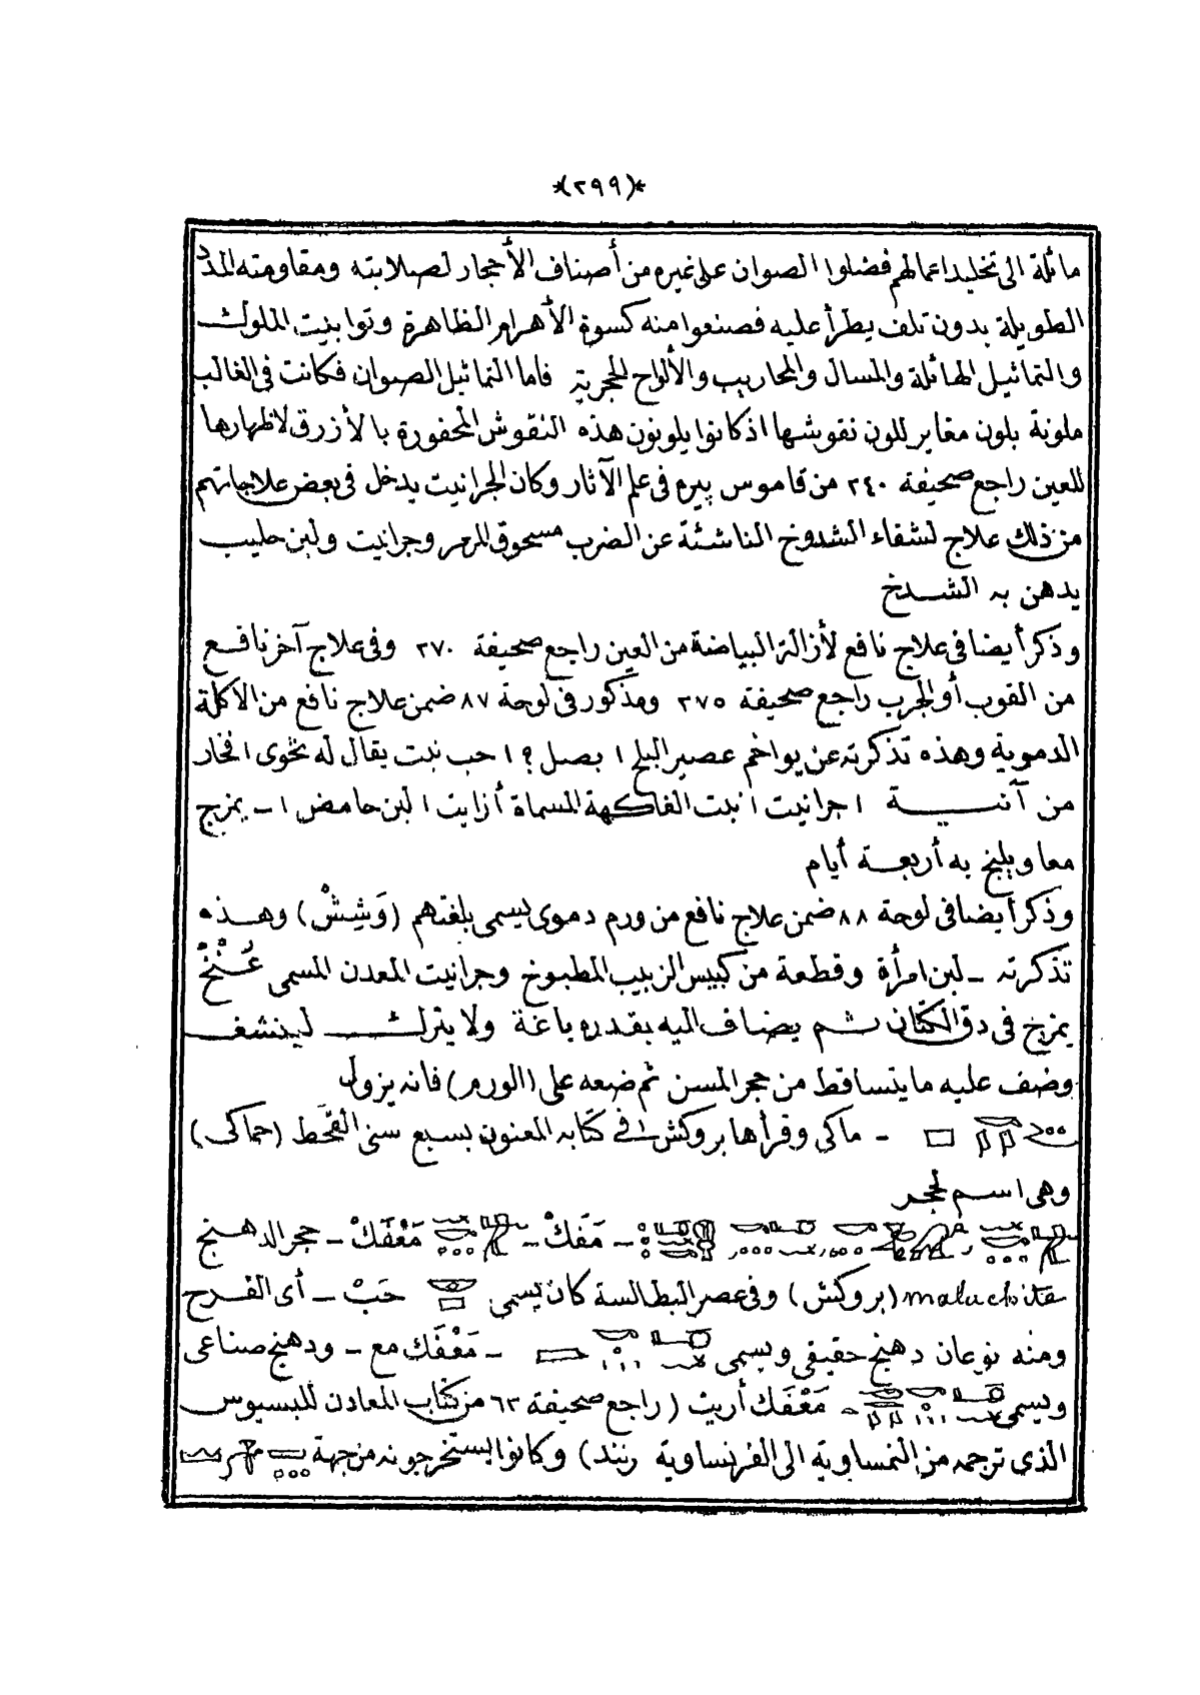 *(٢٩٩)*
مائلة الى تخليد اعمالهم فضلوا الصوان على غيره من أصناف الأحجار لصلابته ومقاومته المدد
الطويلة بدون تلف يطرأ عليه فصنعوا منه كسوة الأهرام الظاهرة وتوابيت الملوك
والتماثيل الهائلة والمسال والمحاريب والألواح الحجرية فاما التماثيل الصوان فكانت فى الغالب
ملونة بلون مغاير للون نقوشها اذ كانوا يلونون هذه النقوش المحفورة بالأزرق لاظهارها
للعين راجع صحيفة ٢٤٠ من قاموس پيره فى علم الآثار وكان الجرانيت يدخل فى بعض علاجاتهم
من ذلك علاج لشفاء الشدوخ الناشئة عن الضرب مسحوق المرمر وجرانيت ولبن حليب
يدهن به الشدخ
وذكر أيضا فى علاج نافع لأزالة البياضة من العين راجع صحيفة ٢٧٠ وفى علاج آخر نافع
من القوب أو الجرب راجع صحيفة ٢٧٥ ومذكور فى لوحة ٨٧ ضمن علاج نافع من الأكلة
الدموية وهذه تذكرته عن يواخم عصير البلح ١ بصل؟ ١ حب نبت يقال له نحوى ١ فخار
من آنية ١ جرانيت ١ نبت الفاكهة المسماة أزايت ١ لبن حامض ١ - يمزج
معا ويلبخ به أربعة أيام
وذكر أيضا فى لوحة ٨٨ ضمن علاج نافع من ورم دموى يسمى بلغتهم (وَشِشْ) وهذه
تذكرته - لبن امرأة وقطعة من كبيس الزبيب المطبوخ وجرانيت المعدن المسمى عُنْخْ
يمزج فى دق الكتان ثم يضاف اليه بقدره ياغة ولا يترك لينشف
وضف عليه ما يتساقط من حجر المسن ثم ضعه على (الورم) فانه يزول
- ماكى وقرأها بروكش فى كتابه المعنون بسبع سنى القحط (حماكى)
وهى اسم لحجر
- مَفَكْ - مَعْفَكْ - حجر الدهنج
malachite (بروكش) وفى عصر البطالسة كان يسمى حَبْ - أى الفرح
ومنه نوعان دهنج حقيقى ويسمى - مَعْفَك مع - ودهنج صناعى
ويسمى مَعْفَك أريت (راجع صحيفة ٦٣ من كتاب المعادن للبسيوس
الذى ترجمه من النمساوية الى الفرنساوية رنند) وكانوا يستخرجونه من جهة